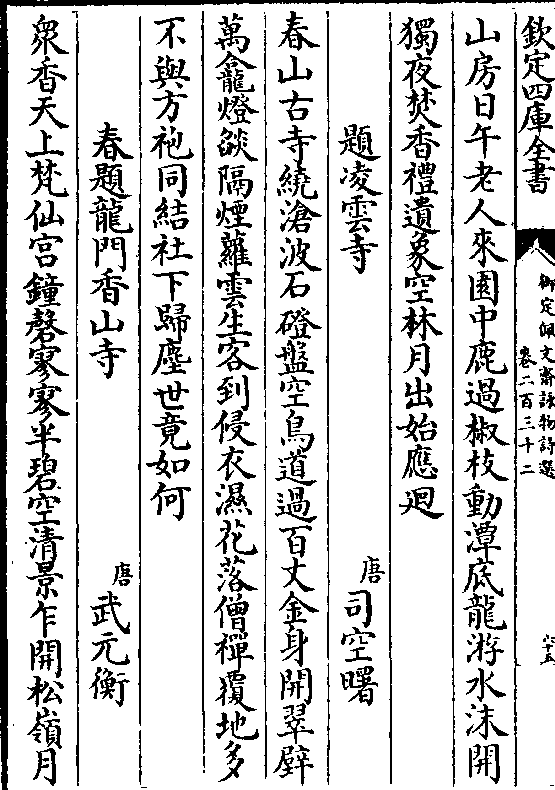 欽定四庫全書
御定佩文齋詠物詩選
卷二百三十二
六十五
山房日午老人來園中鹿過椒枝動潭底龍游水沫開
獨夜焚香禮遺象空林月出始應迴
題凌雲寺
唐司空曙
春山古寺繞滄波石磴盤空鳥道過百丈金身開翠壁
萬龕燈燄隔煙蘿雲生客到侵衣濕花落僧禪覆地多
不與方袍同結社下歸塵世竟如何
春題龍門香山寺
唐武元衡
衆香天上梵仙宮鐘磬寥寥半碧空清景乍開松嶺月